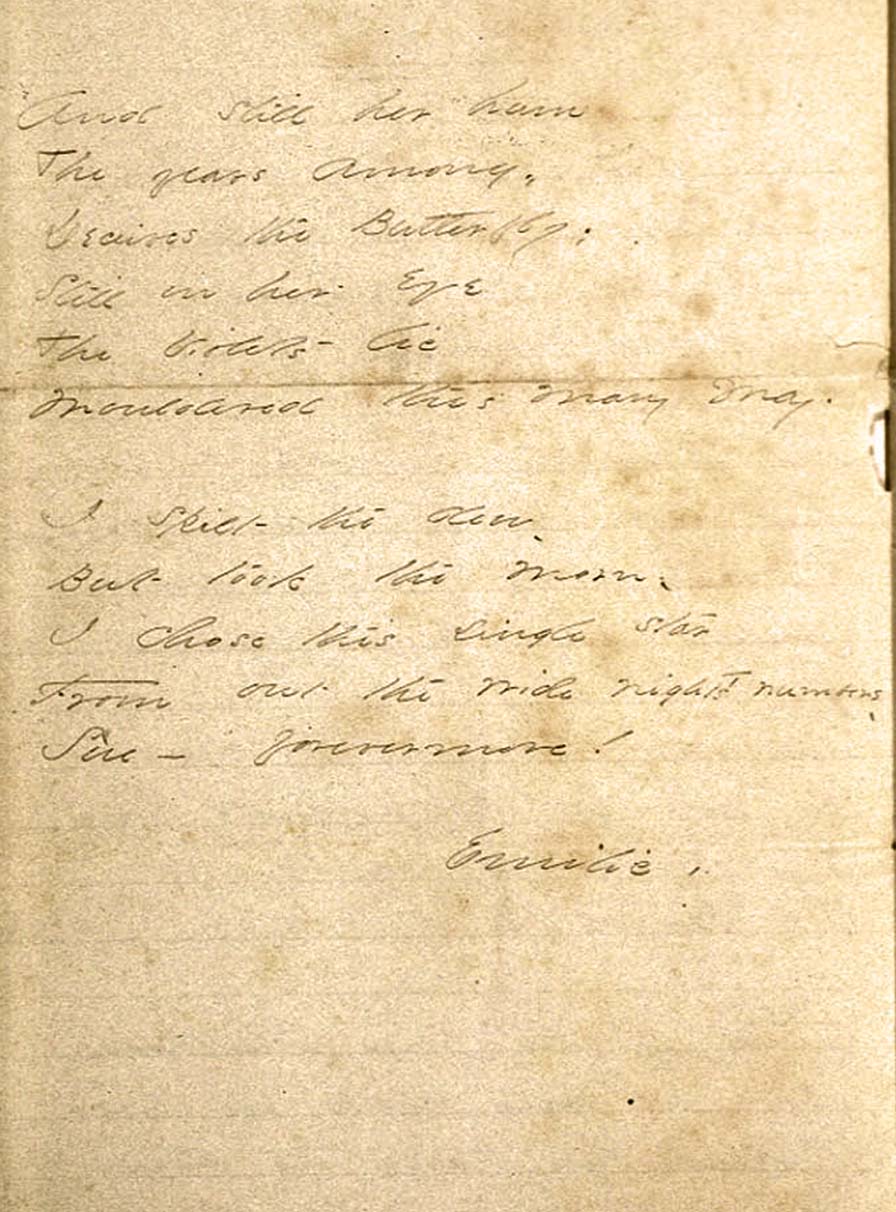 And still her hum
The years among,
Deceives the Butterfly;
Still in her Eye
The Violets lie
Mouldered this many May.
I spilt the dew,
But took the morn;
I chose this single star
From out the wide night's numbers,
Sue - forevermore!
Emilie.